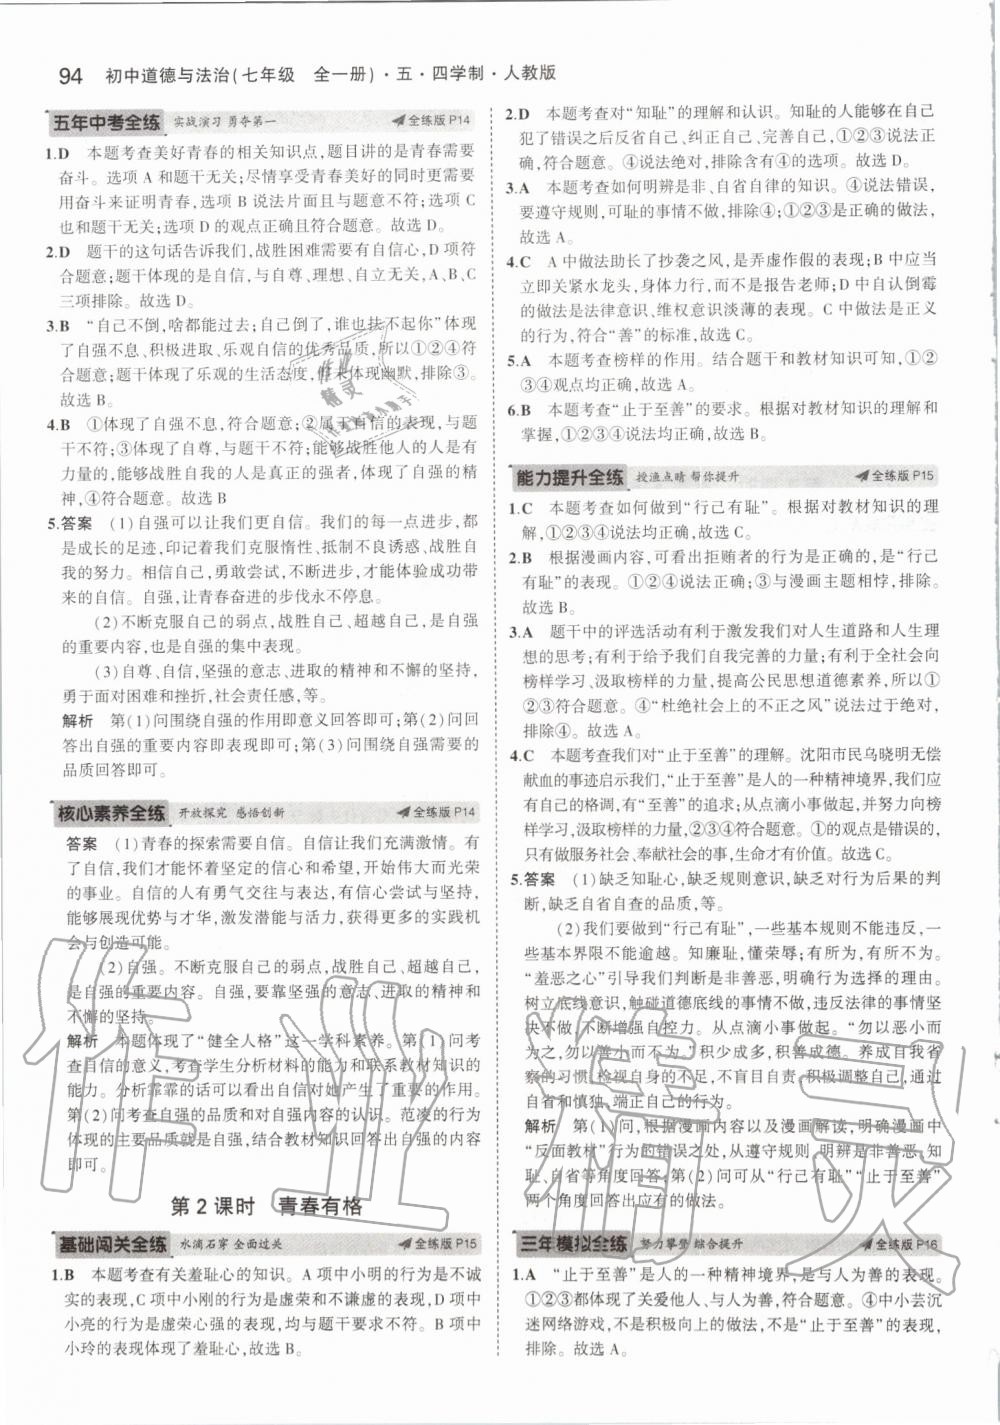 94 初中道德与法治(七年级 全一册)·五·四学制·人教版
五年中考全练 实战演习 勇夺第一 全练版 P14
1.D 本题考查美好青春的相关知识点,题目讲的是青春需要
奋斗。选项 A 和题干无关;尽情享受青春美好的同时更需要
用奋斗来证明青春,选项 B 说法片面且与题意不符;选项 C
也和题干无关;选项 D 的观点正确且符合题意。故选 D。
2.D 题干的这句话告诉我们,战胜困难需要有自信心,D 项符
合题意;题干体现的是自信,与自尊、理想、自立无关,A、B、C
三项排除。故选 D。
3.B “自己不倒,啥都能过去;自己倒了,谁也扶不起你”体现
了自强不息、积极进取、乐观自信的优秀品质,所以①②④符
合题意;题干体现了乐观的生活态度,不是体现幽默,排除③。
故选 B。
4.B ①体现了自强不息,符合题意;②属于自信的表现,与题
干不符;③体现了自尊,与题干不符;能够战胜他人的人是有
力量的,能够战胜自己的人是真正的强者,体现了自强的精
神,④符合题意。故选 B
5.答案 (1)自强可以让我们更自信。我们的每一点进步,都
是成长的足迹,印记着我们克服惰性、抵制不良诱惑、战胜自
我的努力。相信自己,勇敢尝试,不断进步,才能体验成功带
来的自信。自强,让青春奋进的步伐永不停息。
(2)不断克服自己的弱点,战胜自己、超越自己,是自强
的重要内容,也是自强的集中表现。
(3)自尊、自信,坚强的意志、进取的精神和不懈的坚持,
勇于面对困难和挫折,社会责任感,等。
解析 第(1)问围绕自强的作用即意义回答即可;第(2)问回
答出自强的重要内容即表现即可;第(3)问围绕自强需要的
品质回答即可。
核心素养全练 开放探究 感悟创新 全练版 P14
答案 (1)青春的探索需要自信。自信让我们充满激情。有
了自信,我们才能怀着坚定的信心和希望,开始伟大而光荣
的事业。自信的人有勇气交往与表达,有信心尝试与坚持,
能够展现优势与才华,激发潜能与活力,获得更多的实践机
会与创造可能。
(2)自强。不断克服自己的弱点,战胜自己、超越自己,
是自强的重要内容。自强,要靠坚强的意志、进取的精神和
不懈的坚持。
解析 本题体现了“健全人格”这一学科素养。第(1)问考
查自信的意义,考查学生分析材料的能力和联系教材知识的
能力。分析霏霏的话可以看出自信对她产生了重要的作用。
第(2)问考查自强的品质和对自强内容的认识。范凌的行为
体现的主要品质就是自强,结合教材知识回答出自强的内容
即可。
第 2 课时 青春有格
基础闯关全练 水滴石穿 全面过关 全练版 P15
1.B 本题考查有关羞耻心的知识。A 项中小明的行为是不诚
实的表现,C 项中小刚的行为是虚荣和不谦虚的表现,D 项中
小亮的行为是虚荣心强的表现,均与题干要求不符。B 项中
小玲的表现体现了羞耻心,故选 B。
2.D 本题考查对“知耻”的理解和认识。知耻的人能够在自己
犯了错误之后反省自己、纠正自己、完善自己,①②③说法正
确,符合题意。④说法绝对,排除含有④的选项。故选 D。
3.A 本题考查如何明辨是非、自省自律的知识。④说法错误,
要遵守规则,可耻的事情不做,排除④;①②③是正确的做法,
故选 A。
4.C A 中做法助长了抄袭之风,是弄虚作假的表现;B 中应当
立即关紧水龙头,身体力行,而不是报告老师;D 中自认倒霉
的做法是法律意识、维权意识淡薄的表现。C 中做法是正义
的行为,符合“善”的标准,故选 C。
5.A 本题考查榜样的作用。结合题干和教材知识可知,①②
③④观点均正确,故选 A。
6.B 本题考查“止于至善”的要求。根据对教材知识的理解和
掌握,①②③④说法均正确,故选 B。
能力提升全练 授渔点睛 帮你提升 全练版 P15
1.C 本题考查如何做到“行己有耻”。根据对教材知识的理
解,①②③④说法均正确,故选 C。
2.B 根据漫画内容,可看出拒贿者的行为是正确的,是“行己
有耻”的表现。①②④说法正确;③与漫画主题相悖,排除。
故选 B。
3.A 题干中的评选活动有利于激发我们对人生道路和人生理
想的思考;有利于给予我们自我完善的力量;有利于全社会向
榜样学习、汲取榜样力量,提高公民思想道德素养,所以①
②③对题干的评析是正确的。④“杜绝社会上的不正之风”说法绝
对,排除④。故选 A。
4.C 本题考查我们对“止于至善”的理解。沈阳市民乌晓明无偿
献血的事迹启示我们,“止于至善”是人的一种精神境界,我们应
有自己的格调,有“至善”的追求;从点滴小事做起,并努力向榜
样学习,汲取榜样的力量,②③④符合题意。①的观点是错误的,
只有做服务社会、奉献社会的事,生命才有价值。故选 C。
5.答案 (1)缺乏知耻心,缺乏规则意识,缺乏对行为后果的判
断,缺乏自省自查的品质,等。
(2)我们要做到“行己有耻”,一些基本规则不能违反,一
些基本界限不能逾越。知廉耻,懂荣辱;有所为,有所不为。
“羞恶之心”引导我们判断是非善恶,明确行为选择的理由。
树立底线意识,触碰道德底线的事情不做,违反法律的事情坚
决不做,不断增强自控力。从点滴小事做起。“勿以恶小而
为之,勿以善小而不为。”积少成多,积善成德。养成自我省
察的习惯,检视自身的不足,不盲目否定、积极调整自己。做到
自省和慎独,端正自己的行为。
解析 第(1)问,根据漫画内容以及漫画解读,明确漫画中
“反面教材”行为的错误之处,从遵守规则、明辨是非善恶、知
耻、自省等角度回答;第(2)问可从“行己有耻”“止于至善”
两个角度回答出应有的做法。
三年模拟全练 努力攀登 综合提升 全练版 P16
1.A “止于至善”是人的一种精神境界,是与人为善的表现。
①②③都体现了关爱他人、与人为善,符合题意。④中小芸沉
迷网络游戏,不是积极向上的做法,不是“止于至善”的表现,
排除。故选 A。